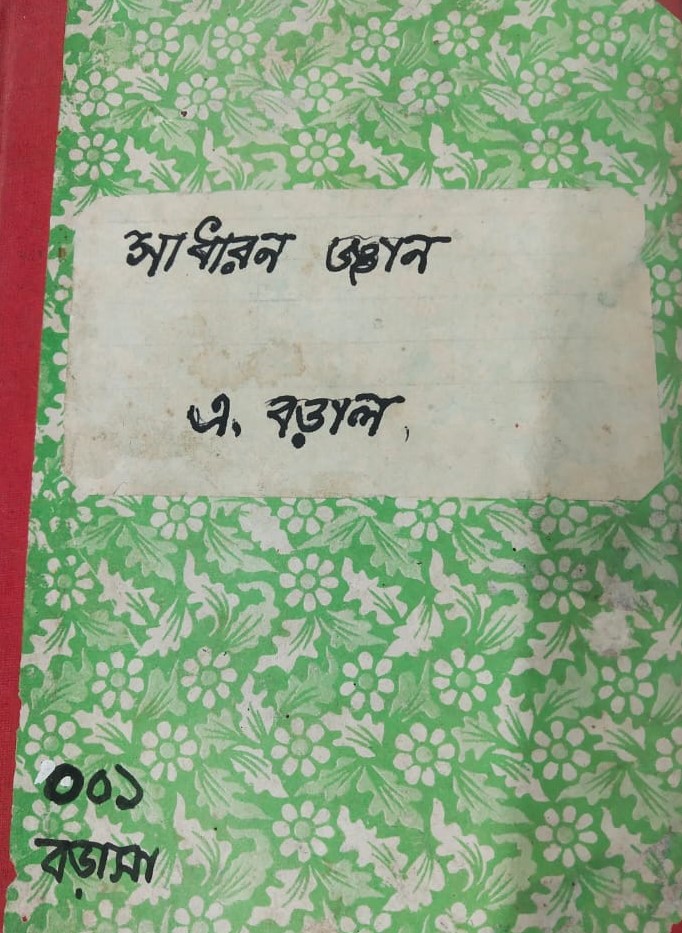 সাধারন জ্ঞান
এ. বড়াল
০০১
বড়াসা